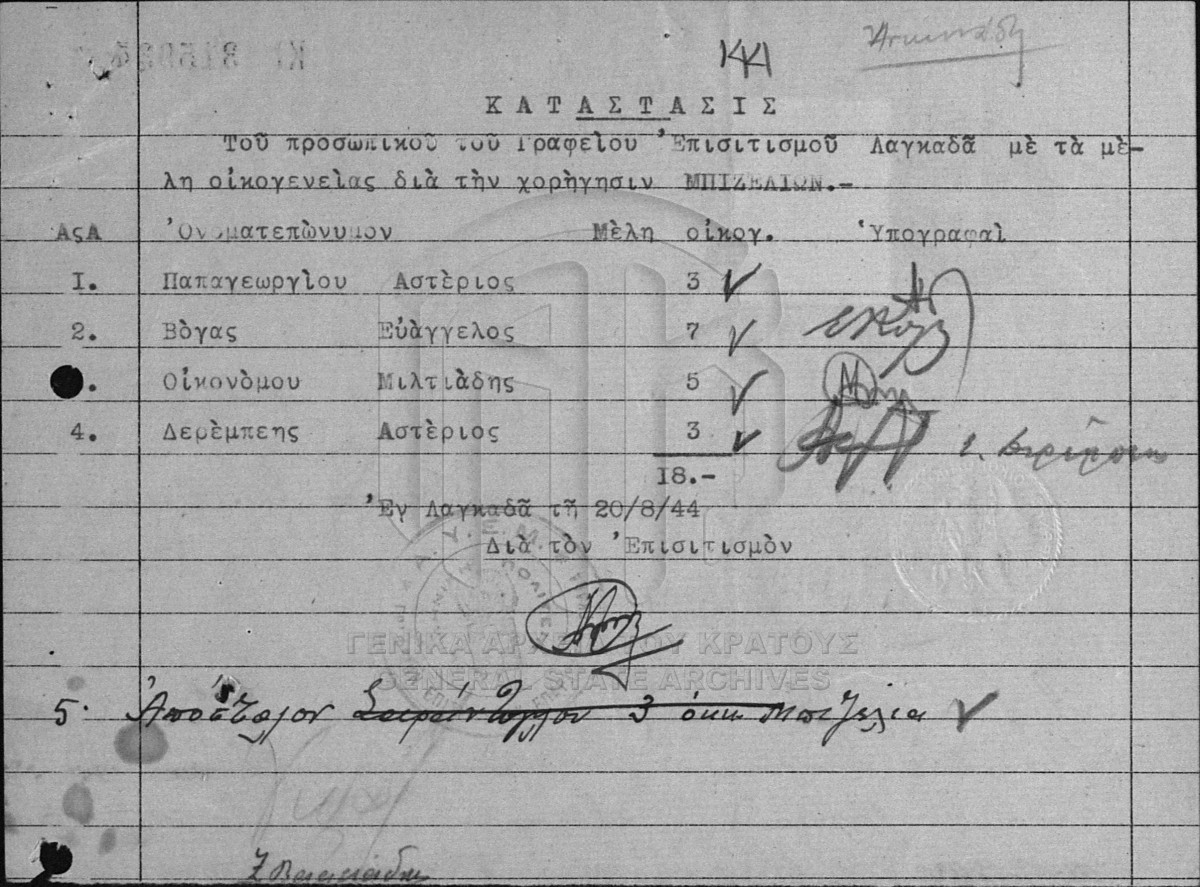 441
Κ Α Τ Α Σ Τ Α Σ Ι Σ
Τοῦ προσωπικοῦ τοῦ Γραφείου Ἐπισιτισμοῦ Λαγκαδᾶ μὲ τὰ μὲ-
λη οἰκογενείας διὰ τὴν χορὴγησιν ΜΠΙΖΕΛΙΩΝ.-
ΑςΑ Ὀνοματεπὼνυμον Μὲλη οἰκογ. Ὑπογραφαὶ
Ι. Παπαγεωργὶου Αστὲριος 3
2. Βὸγας Εὐὰγγελος 7
. Οἰκονὸμου Μιλτιὰδης 5
4. Δερὲμπεης Αστὲριος 3
Ι8.-
Ἐν Λαγκαδᾶ τῆ 20/8/44
Διὰ τὸν Ἐπισιτισμὸν
ΓΕΝΙΚΑ ΑΡΧΕΙΑ ΤΟΥ ΚΡΑΤΟΥΣ
GENERAL STATE ARCHIVES
5. Ἀποστολου 3 ὀκ. Μπιζελια